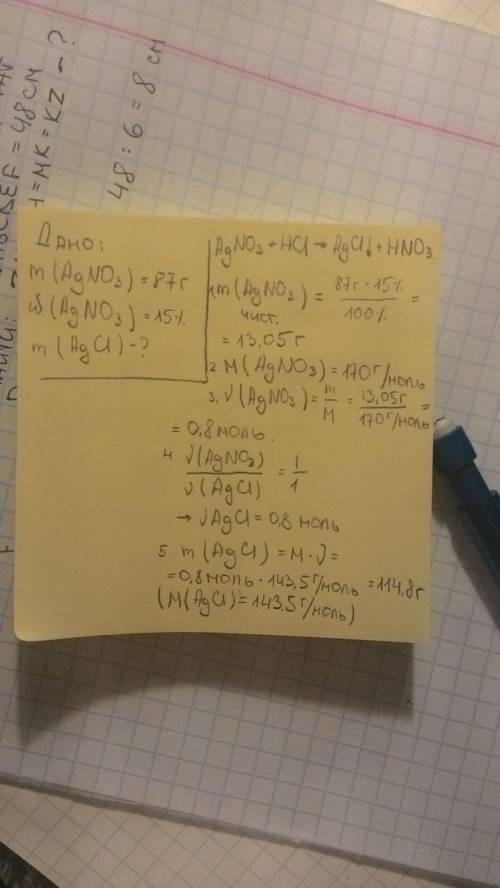 48 : 6 = 8 см
= 48 см
= MK = KZ - ?
Дано:
m (AgNO₃) = 87г
ω (AgNO₃) = 15%
m (AgCl) - ?
AgNO₃ + HCl → AgCl↓ + HNO₃.
1. m (AgNO₃) чист. = 87г · 15% / 100% =
= 13,05г
2. M (AgNO₃) = 170 г/моль
3. ν (AgNO₃) = m / M = 13,05г / 170 г/моль =
= 0,8 моль.
4. ν (AgNO₃) / ν (AgCl) = 1 / 1
→ ν AgCl = 0,8 моль
5. m (AgCl) = M · ν =
= 0,8 моль · 143,5 г/моль = 114,8г
(M (AgCl) = 143,5 г/моль)